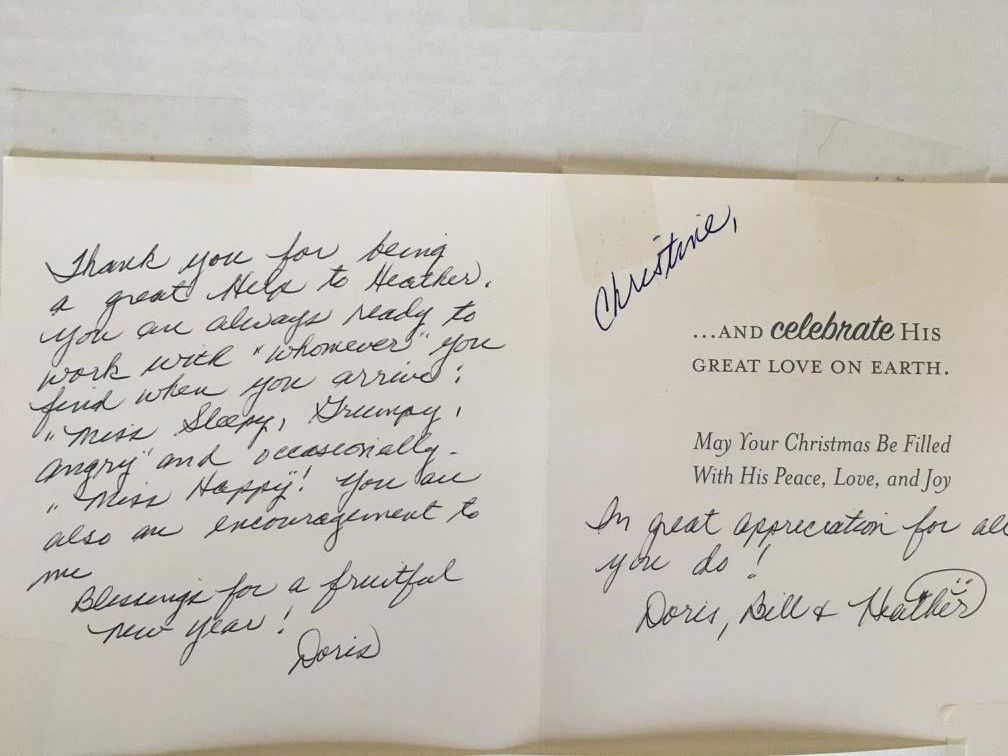 Thank you for being
a great Help to Heather.
You are always ready to
work with "whomever" you
find when you arrive:
"Miss Sleepy, Grumpy,
Angry" and occasionally-
"Miss Happy"! You are
also an encouragement to
me
Blessings for a fruitful
new year!
Doris
Christine,
...AND celebrate HIS
GREAT LOVE ON EARTH.
May Your Christmas Be Filled
With His Peace, Love, and Joy
In great appreciation for all
you do!
Doris, Bill & Heather